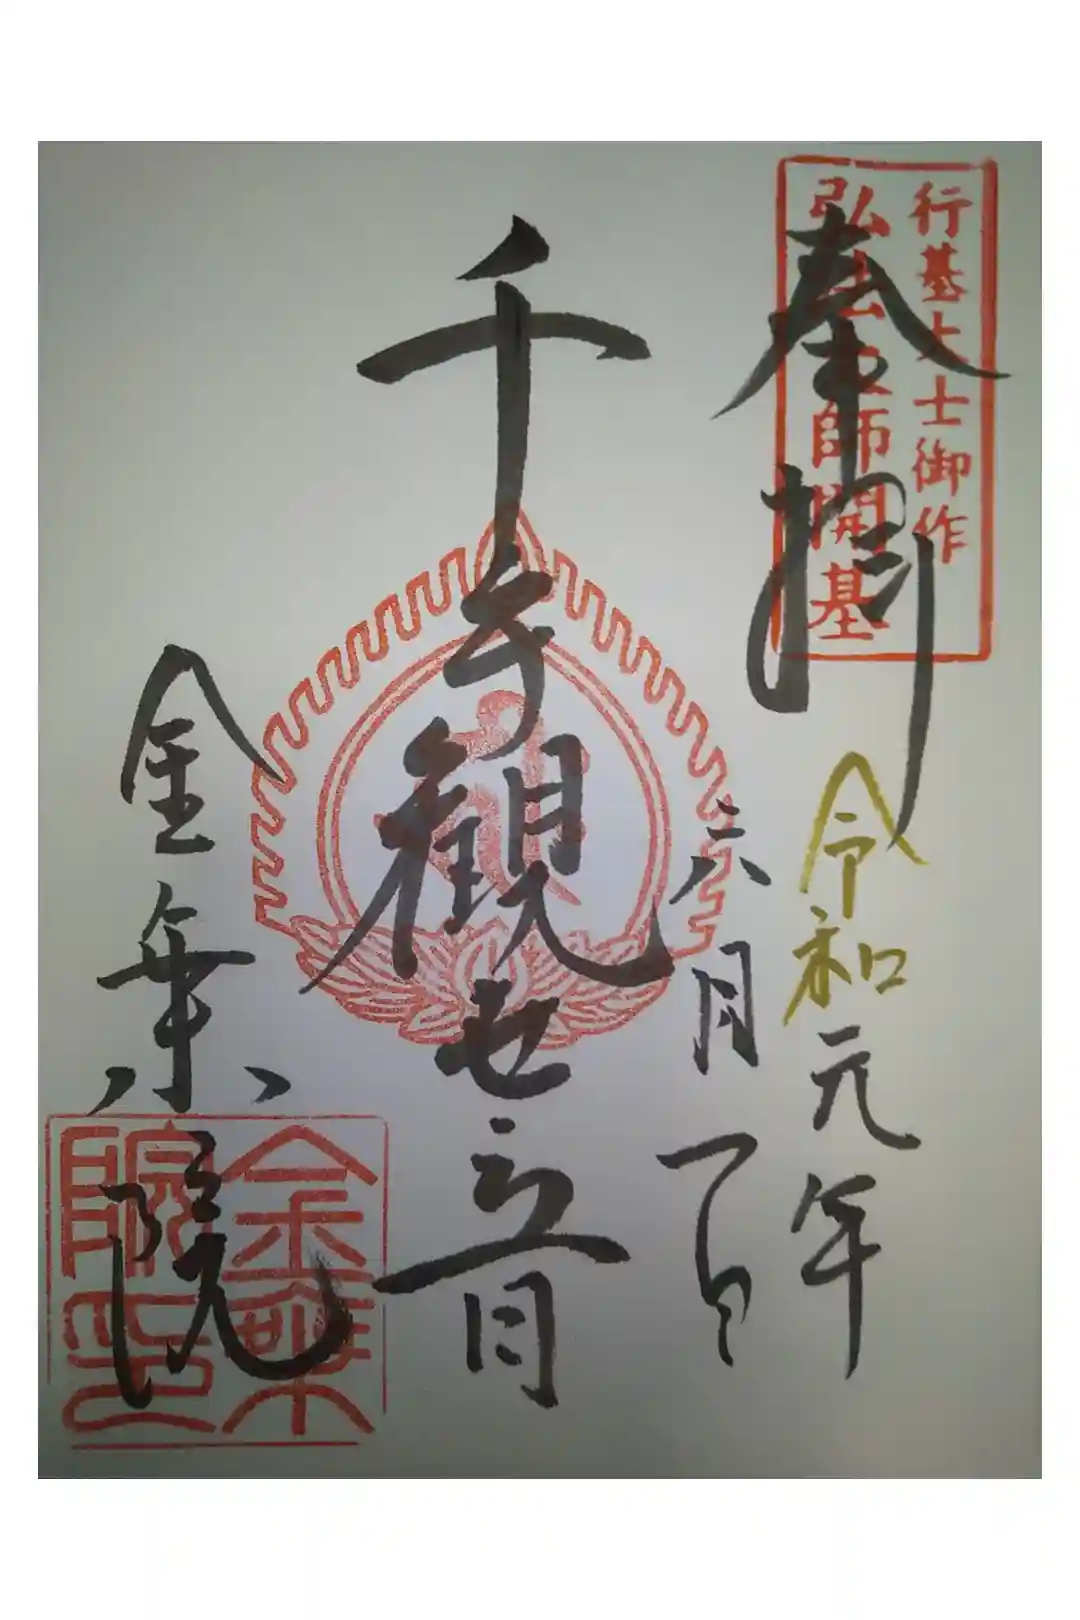 行基大士御作
弘法大師開基
奉拝
令和元年
六月一日
千手観世音
金乗院
金乗
院印